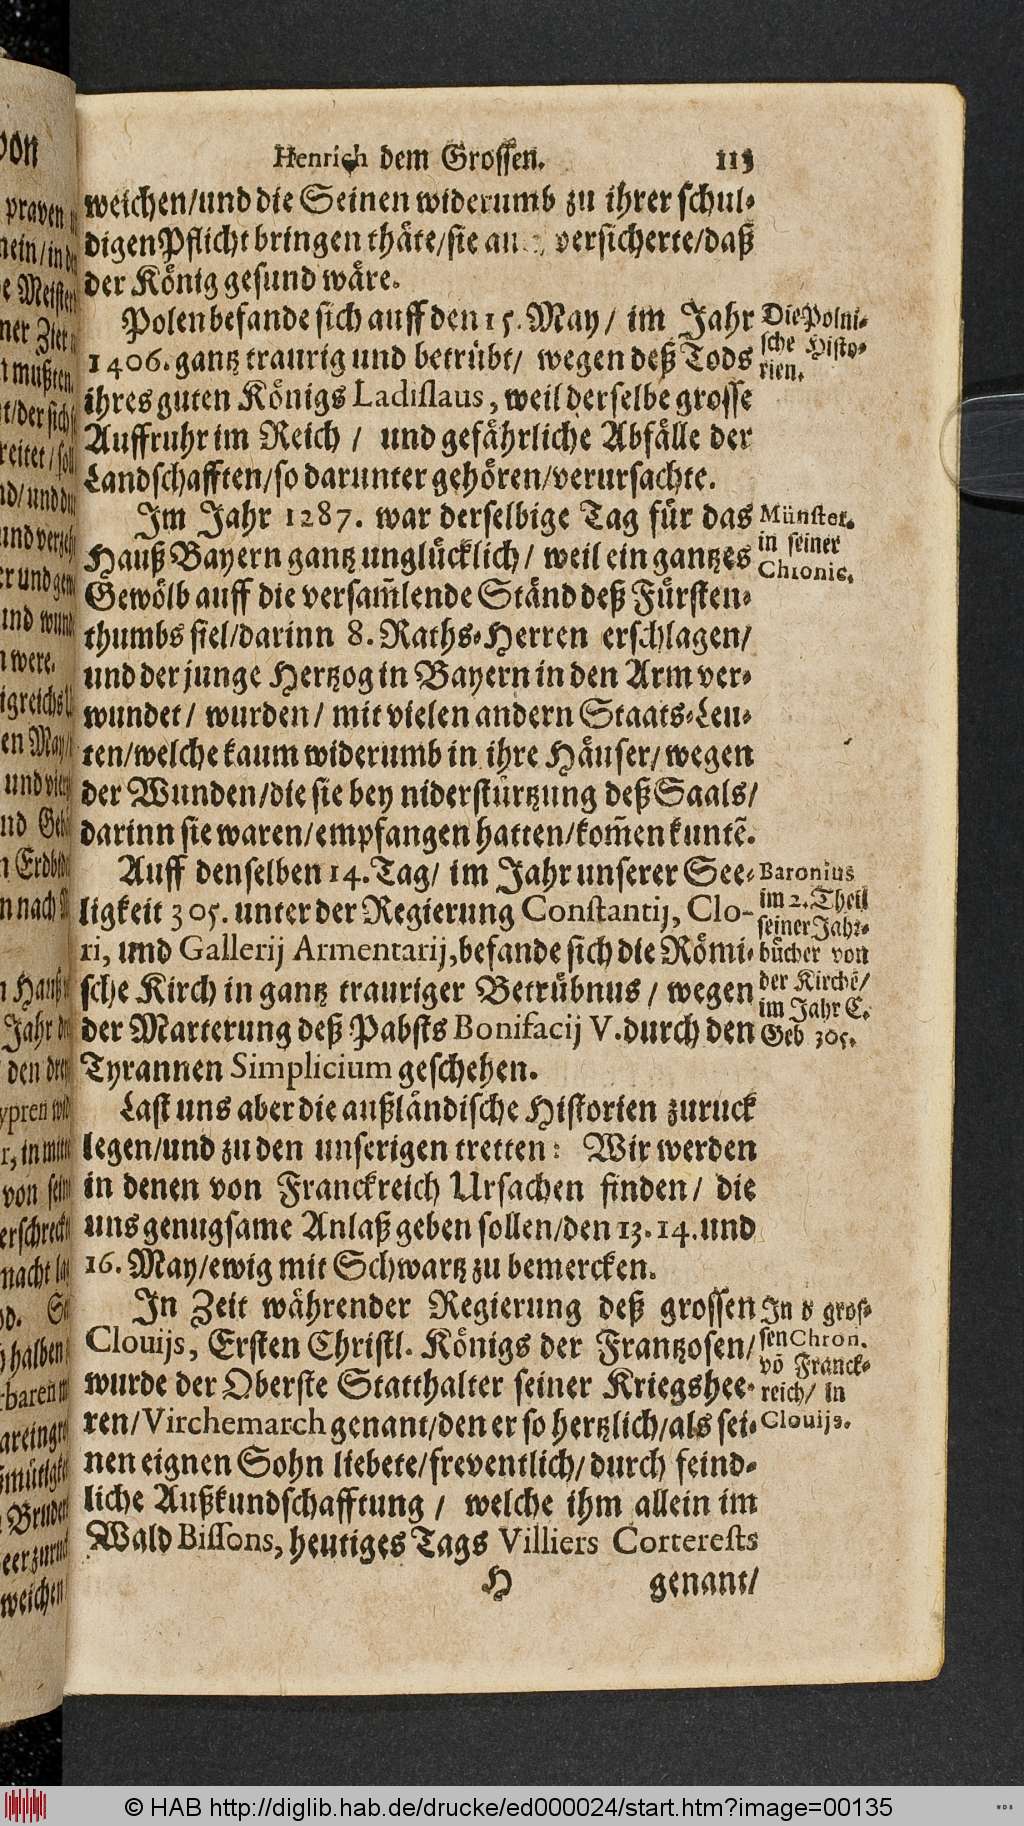 Henrich dem Grossen. 113
weichen/und die Seinen widerumb zu ihrer schul-
digen Pflicht bringen thäte/sie versicherte/daß
der König gesund wäre.
Polen befande sich auff den 15. May/ im Jahr
1406. gantz traurig und betrübt/ wegen deß Tods
ihres guten Königs Ladislaus, weil derselbe grosse
Auffruhr im Reich / und gefährliche Abfälle der
Landschafften/so darunter gehören/verursachte.
Die Polni-
sche Histo-
rien.
Im Jahr 1287. war derselbige Tag für das
Hauß Bayern gantz unglücklich/ weil ein gantzes
Gewölb auff die versam̃lende Ständ deß Fürsten-
thumbs fiel/darinn 8. Raths-Herren erschlagen/
und der junge Hertzog in Bayern in den Arm ver-
wundet/ wurden/ mit vielen andern Staats-Leu-
ten/welche kaum widerumb in ihre Häuser/wegen
der Wunden/die sie bey niderstürtzung deß Saals/
darinn sie waren/empfangen hatten/kom̃en kuntẽ.
Münster.
in seiner
Chronic.
Auff denselben 14. Tag/ im Jahr unserer See-
ligkeit 305. unter der Regierung Constantij, Clo-
ri, und Gallerij Armentarij, befande sich die Römi-
sche Kirch in gantz trauriger Betrübnus / wegen
der Marterung deß Pabsts Bonifacij V. durch den
Tyrannen Simplicium geschehen.
Baronius
im 2. Theil
seiner Jahr-
bücher von
der Kirchẽ/
im Jahr C.
Geb 305.
Last uns aber die außländische Historien zuruck
legen/und zu den unserigen tretten: Wir werden
in denen von Franckreich Ursachen finden/ die
uns genugsame Anlaß geben sollen/den 13. 14. und
16. May/ewig mit Schwartz zu bemercken.
In Zeit währender Regierung deß grossen
Clouijs, Ersten Christl. Königs der Frantzosen/
wurde der Oberste Statthalter seiner Kriegshee-
ren/Virchemarch genant/den er so hertzlich/als sei-
nen eignen Sohn liebete/freventlich/durch feind-
liche Außkundschafftung / welche ihm allein im
Wald Bissons, heutiges Tags Villiers Corterests
In d gros-
sen Chron.
võ Franck-
reich/ in
Clouijs.
H genant/
© HAB http://diglib.hab.de/drucke/ed000024/start.htm?image=00135